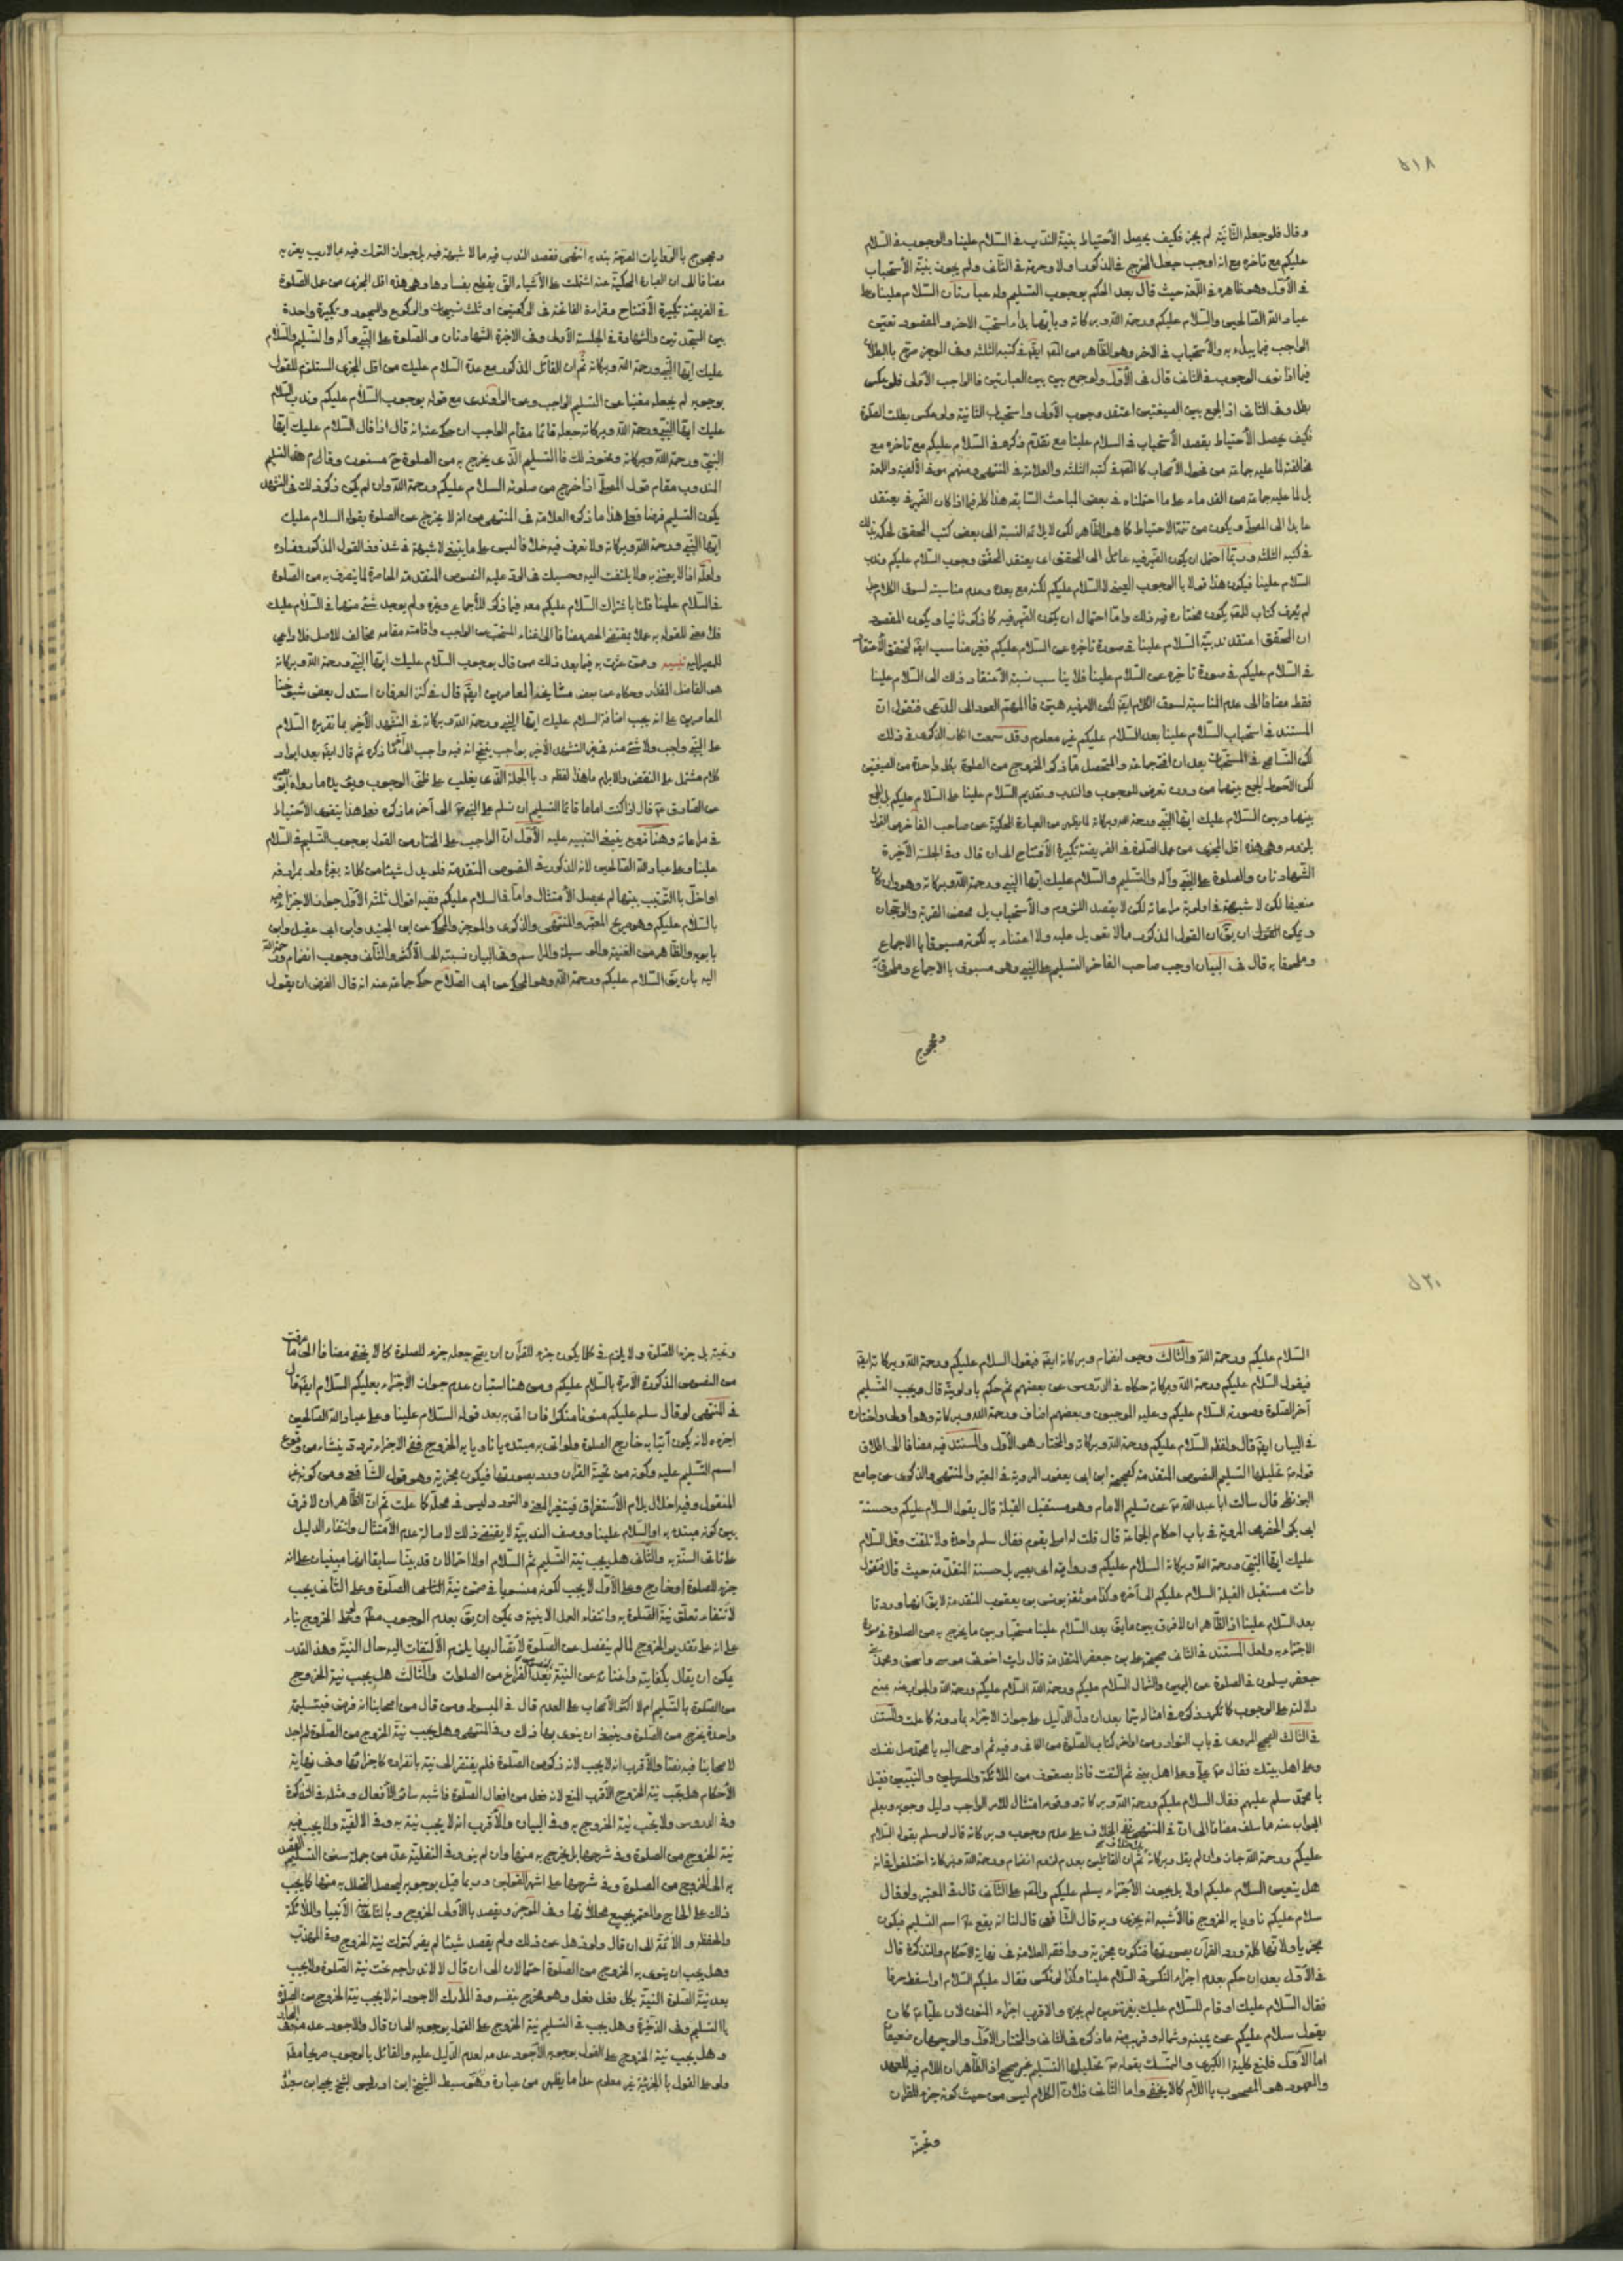 ٥١٨
وقال فلو جعله الثانية لم يجز فكيف يحصل الاحتياط بنية الندب في السلام علينا والوجوب في السلام
عليكم مع تاخره مع انه اوجب جعل المخرج في الذكرى اولا وجزم في الثاني ولم يجوز نية الاستحباب
في الاول وهو ظاهره في اللمعة حيث قال بعد الحكم بوجوب التسليم وله عبارتان السلام علينا وعلى
عباد الله الصالحين والسلام عليكم ورحمة الله وبركاته وبايهما بدا استحب الاخر والمقصود تعيين
الواجب فيما يبدء به والاستحباب في الاخر وهو الظاهر من في كتبه الثلثة وفي الموجز صرح بالبطلان
فيما اذا نوى الوجوب في الثاني قال في الاول ولو جمع بين العبارتين فالواجب الاولى فلو عكس
بطل وفي الثاني اذ الجمع بين الصيغتين اعتقد وجوب الاولى واستحباب الثانية ولو عكس بطلت الصلوة
فكيف يحصل الاحتياط بقصد الاستحباب في السلام علينا مع تقدم ذكره في السلام عليكم مع تاخره مع
مخالفته لما عليه جماعة من فحول الاصحاب في كتبه الثلثة والعلامة في المنتهى ومنهم في الالفية واللمعة
بل لما عليه جماعة من القدماء على ما احتملناه في بعض المباحث السابقة هذا كله فيما اذا كان الضمير في يعتقد
عايدا الى المصلي ويكون من تتمة الاحتياط كما هو الظاهر لكن لا يلائمه النسبة الى بعض كتب المحقق
في كتبه الثلثة وربما احتمل ان يكون الضمير فيه عائدا الى المحقق اي يعتقد المحقق وجوب السلام عليكم وندب
السلام علينا فيكون هذا قولا بالوجوب العيني للسلام عليكم لكنه مع بعده وعدم مناسبته لسوق الكلام
لم يعرف كتاب للمحقق يكون مختاره فيه ذلك واما احتمال ان يكون الضمير فيه كما ذكر ثانيا ويكون المقصود
ان المحقق اعتقد ندبية السلام علينا في صورة تاخره عن السلام عليكم فغير مناسب ايضا لتحقق الاعتقاد
في السلام عليكم في صورة تاخره عن السلام علينا فلا يناسب نسبة الاعتقاد ذلك الى السلام علينا
فقط مضافا الى عدم المناسبة لسوق الكلام ايضا لكن الامر فيه هين فالمهم العود الى المدعى فنقول ان
المستند في استحباب السلام علينا بعد السلام عليكم غير معلوم وقد سمعت انكار الذكرى في ذلك
لكن التسامح في المستحبات بعد ان افتى جماعة والمتحصل مما ذكر الخروج من الصلوة بكل واحدة من الصيغتين
لكن الاحوط الجمع بينهما من دون تعرض للوجوب والندب وتقديم السلام علينا على السلام عليكم بل الجمع
بينهما وبين السلام عليك ايها النبي ورحمة الله وبركاته لما يظهر من العبارة المحكية عن صاحب الفاخر من القول
بلزومه وهي هذه اقل المجزي من عمل الصلوة في الفريضة تكبيرة الافتتاح الى ان قال وفي الجلسة الاخيرة
الشهادتان والصلوة على النبي وآله والتسليم والسلام عليك ايها النبي ورحمة الله وبركاته وهو وان كان
ضعيفا لكن لا شبهة في اولوية مراعاته لكن لا يقصد اللزوم والاستحباب بل محض القربة والرجحان
ويمكن القول ان يق ان القول المذكور مما لا تعويل عليه ولا اعتناء به لكونه مسبوقا بالاجماع
وملحوقا به قال في البيان اوجب صاحب الفاخر التسليم على النبي وهو مسبوق بالاجماع وملحوق به
ومحجوج
ومحجوج بالروايات المصرحة بندبه انتهى فقصد الندب فيه مما لا شبهة فيه بل جواز الترك فيه مما لا ريب يعتريه
مضافا الى ان العبارة المحكية عنه اشتملت على الاشياء التي يقطع بفسادها وهي هذه اقل المجزي من عمل الصلوة
في الفريضة تكبيرة الافتتاح وقراءة الفاتحة في الركعتين او ثلث تسبيحات والركوع والسجود وتكبيرة واحدة
بين السجدتين والشهادة في الجلسة الاولى وفي الاخيرة الشهادتان والصلوة على النبي وآله والتسليم والسلام
عليك ايها النبي ورحمة الله وبركاته ثم ان القائل المذكور مع عده السلام عليك من اقل المجزي المستلزم للقول
بوجوبه لم يجعله مغنيا عن التسليم الواجب وعن الراوندي مع قوله بوجوب السلام عليكم وندب السلام
عليك ايها النبي ورحمة الله وبركاته جعله قائما مقام الواجب ان حكى عنه انه قال اذا قال السلام عليك ايها
النبي ورحمة الله وبركاته ونحو ذلك فالتسليم الذي يخرج به من الصلوة ح مسنون وقام هذا التسليم
المندوب مقام قول المصلي اذا خرج من صلوته السلام عليكم ورحمة الله وان لم يكن ذكر ذلك في التشهد
يكون التسليم فرضا فعلى هذا ما ذكره العلامة في المنتهى من انه لا يخرج عن الصلوة بقوله السلام عليك
ايها النبي ورحمة الله وبركاته ولا نعرف فيه خلافا ليس على ما ينبغي لا شبهة في شذوذ القول المذكور وفساده
ولعله اذا لا يعتنى به ولا يلتفت اليه وحسبك في الرد عليه النصوص المتقدمة الحاصرة لما ينصرف به من الصلوة
في السلام علينا قلنا باشتراك السلام عليكم معه فيما ذكر للاجماع وغيره ولم يوجد شئ منهما في السلام عليك
فلا معنى للقول به عملا بمقتضى الحصر مضافا الى اغناء المستحب عن الواجب واقامته مقامه مخالف للاصل فلا داعي
للمصير اليه تنبيه وممن عثرت به فيما بعد ذلك من قال بوجوب السلام عليك ايها النبي ورحمة الله وبركاته
هو الفاضل المقداد وحكاه عن بعض مشايخه المعاصرين ايضا قال في كنز العرفان استدل بعض شيوخنا
المعاصرين على انه يجب اضافة السلام عليك ايها النبي ورحمة الله وبركاته في التشهد الاخير بما تقريره السلام
على النبي واجب ولا شئ منه في غير التشهد الاخير بواجب ينتج انه فيه واجب الى آخر ما ذكره ثم قال ايضا بعد ايراد
كلام مشتمل على النقض والابرام ما هذا لفظه وبالجملة الذي يغلب على ظني الوجوب ويؤيده ما رواه ابو بصير
عن الصادق ع قال اذا كنت اماما فانما التسليم ان تسلم على النبي ص الى آخر ما ذكره فعلى هذا يتقوى الاحتياط
في مراعاته وهنا فروع ينبغي التنبيه عليه الاول ان الواجب على المختار من القول بوجوب التسليم في السلام
علينا وعلى عباد الله الصالحين لانه المذكور في النصوص المتقدمة فلو بدل شيئا من كلماته بغيرها ولو بمرادفه
او اخل بالترتيب بينها لم يحصل الامتثال واما في السلام عليكم ففيه اقوال ثلثة الاول جواز الاجتزاء فيه
بالسلام عليكم وهو صريح المعتبر والمنتهى والذكرى والموجز والمحكي عن ابن الجنيد وابن ابي عقيل وابن
بابويه والظاهر من الغنية والوسيلة والمراسم وفي البيان نسبته الى الاكثر والثاني وجوب انضمام ورحمة الله
اليه بان يق السلام عليكم ورحمة الله وهو المحكي عن ابي الصلاح حكى جماعة عنه انه قال الفرض ان يقول
٥٢٠
السلام عليكم ورحمة الله والثالث وجوب انضمام وبركاته ايضا فيقول السلام عليكم ورحمة الله وبركاته
فيقول السلام عليكم ورحمة الله وبركاته حكاه في الدروس عن بعضهم ثم حكم باولويته قال ويجب التسليم
آخر الصلوة وصورته السلام عليكم وعليه الموجبون وبعضهم اضاف ورحمة الله وبركاته وهو اولى واختاره
في البيان ايضا قال ولفظه السلام عليكم ورحمة الله وبركاته والمختار هو الاول والمستند فيه مضافا الى اطلاق
قوله ص تحليلها التسليم النصوص المتقدمة كصحيحة ابن ابي يعفور المروية في المعتبر والمنتهى والذكرى عن جامع
البزنطي قال سالت ابا عبد الله ع عن تسليم الامام وهو مستقبل القبلة قال يقول السلام عليكم وحسنة
ابي بكر الحضرمي المروية في باب احكام الجماعة قال قلت له اصلي بقوم فقال سلم واحدة ولا تلتفت وقل السلام
عليك ايها النبي ورحمة الله وبركاته السلام عليكم ورواية ابي بصير بل حسنته المتقدمة حيث قال فتقول
وانت مستقبل القبلة السلام عليكم الى آخره وكذا موثقة يونس بن يعقوب المتقدمة لا يق انها وردتا
بعد السلام علينا اذ الظاهر ان لا فرق بين ما يق بعد السلام علينا مستحبا وبين ما يخرج به من الصلوة في صورة
الاجتزاء به ولعل المستند في الثاني صحيحة علي بن جعفر المتقدمة قال رايت اخوتي موسى واسحق ومحمد بني
جعفر يسلمون في الصلوة عن اليمين والشمال السلام عليكم ورحمة الله السلام عليكم ورحمة الله والجواب عنه بمنع
دلالته على الوجوب كما تكرر ذكره في امثاله سيما بعد ان دل الدليل على جواز الاجتزاء بما دونه كما علمت والمستند
في الثالث الصحيح المروي في باب النوادر من اواخر كتاب الصلوة من الكافي وفيه ثم اوحى اليه يا محمد صل على نفسك
وعلى اهل بيتك فقال ص علي وعلى اهل بيتي ثم التفت فاذا بصفوف من الملائكة والمرسلين والنبيين فقيل
يا محمد سلم عليهم فقال السلام عليكم ورحمة الله وبركاته ووقوعه امتثالا للامر الواجب دليل وجوبه ويعلم
الجواب عنه مما سلف مضافا الى ان في المنتهى نفى الخلاف على عدم وجوب وبركاته قال لو سلم بقوله السلام
عليكم ورحمة الله جاز وان لم يقل وبركاته بلا خلاف ثم ان القائلين بعدم لزوم انضمام ورحمة الله وبركاته اختلفوا في انه
هل يتعين السلام عليكم او لا بل يجوز الاجتزاء بسلام عليكم على الثاني قال في المعتبر ولو قال
سلام عليكم ناويا به الخروج فالاشبه انه يجزي وبه قال الشافعي قال لنا انه يقع عليه اسم التسليم فيكون
مجزيا ولانها كلمة ورد القرآن بصورتها فتكون مجزية ووافقه العلامة في نهاية الاحكام والتذكرة قال
في الاول بعد ان حكم بعدم اجزاء النكس في السلام علينا وكذا لو نكس فقال عليكم السلام او اسقط حرفا
فقال السلام عليك او قام للسلام عليك بغير تنوين لم يجزه والاقرب اجزاء المنون لان عليا ع كان
يقول سلام عليكم عن يمينه وشماله وقريب منه ما ذكره في الثاني والمختار الاول والوجهان ضعيفان
اما الاول فلمنع كلية الكبرى والتمسك بقوله ص تحليلها التسليم غير صحيح اذ الظاهر ان اللام فيه للعهد
والمعهود هو المصحوب باللام كما لا يخفى واما الثاني فلان الكلام ليس من حيث كونه جزء للقرآن
وتحية بل جزء للصلوة ولا يلزم في كلما يكون جزء للقرآن ان يصح جعله جزء للصلوة كما لا يخفى مضافا الى ما عرفت
من النصوص المذكورة الآمرة بالسلام عليكم ومن هنا استبان عدم جواز الاجتزاء بعليكم السلام ايضا قال
في المنتهى لو قال سلم عليكم منونا منكرا فان اتى به بعد قوله السلام علينا وعلى عباد الله الصالحين
اجزءه لانه يكون آتيا به خارج الصلوة ولو اتى به مبتدء ناويا به الخروج ففي الاجزاء تردد ينشاء من وقوع
اسم التسليم عليه وكونه من تحية القرآن ورد بصورتها فيكون مجزية وهو قول الشافعي ومن كونه غير
المنقول وفيه اخلال بلام الاستغراق فيتغير المعنى والتردد ليس في محله كما علمت ثم ان الظاهر ان لا فرق
بين كونه مبتدء به او السلام علينا ووصف الندبية لا يقتضي ذلك لاصالة عدم الامتثال وانتفاء الدليل
على تادي السنة به والثاني هل يجب نية التسليم ثم السلام اولا احتمالان قد بينا سابقا انهما مبنيان على انه
جزء للصلوة او خارج وعلى الاول لا يجب لكونه منويا في ضمن نية الصلوة وعلى الثاني يجب
لانتفاء تعلق نية الصلوة به وانتفاء العمل الا بنية ويمكن ان يق بعدم الوجوب مطلقا الخروج بناء
على انه على تقدير الخروج لما لم ينفصل عن الصلوة لاتصاله بها يلزم الالتفات اليه حال النية وهذا القدر
يمكن ان يقال بكفايته واغنائه عن النية بعد الفراغ من الصلوات والثالث هل يجب نية الخروج
من الصلوة بالتسليم ام لا اكثر الاصحاب على العدم قال في المبسوط ومن قال من اصحابنا انه فرض فبتسليمة
واحدة يخرج من الصلوة وينبغي ان ينوي بها ذلك وفي المنتهى وهل يجب نية الخروج من الصلوة لم اجد
لاصحابنا فيه نصا والاقرب انه لا يجب لانه ذكر من الصلوة فلم يفتقر الى نية بانفراده كاجزائها وفي نهاية
الاحكام هل يجب نية الخروج الاقرب المنع لانه فعل من افعال الصلوة فاشبه سائر الافعال ومثله في التذكرة
وفي الدروس ولا يجب نية الخروج به وفي البيان والاقرب انه لا يجب نية به وفي الالفية ولا يجب فيه
نية الخروج من الصلوة وفي شرحها بل يخرج به منها وان لم ينو وفي النفلية عد من جملة سنن التسليم القصد
به الى الخروج من الصلوة وفي شرحها على اشهر القولين وربما قيل بوجوبه ليحصل التحلل به منها كما يجب
ذلك على الحاج والمعتمر بجميع محللاتها وفي الموجز ويقصد بالاولى الخروج وبالثانية الانبياء والملائكة
والحفظة والائمة الى ان قال ولو ذهل عن ذلك ولم يقصد شيئا لم يضر كترك نية الخروج وفي المهذب
وهل يجب ان ينوي به الخروج من الصلوة احتمالان الى ان قال لا لاندراجه تحت نية الصلوة ولا يجب
بعد نية الصلوة النية بكل فعل فعل وهو مخرج بنفسه وفي المدارك الاجود انه لا يجب نية الخروج من الصلوة
بالتسليم وفي الذخيرة وهل يجب في التسليم نية الخروج على القول بوجوبه الى ان قال والاجود عدمه وفي البحار
وهل يجب نية الخروج على القول بوجوبه الاجود عدمه لعدم الدليل عليه والقائل بالوجوب صريحا
ولو على القول بالجزئية غير معلوم عدا ما يظهر من عبارة وهو سبط الشيخ ابن ادريس الشيخ يحيى بن سعيد
وتحية